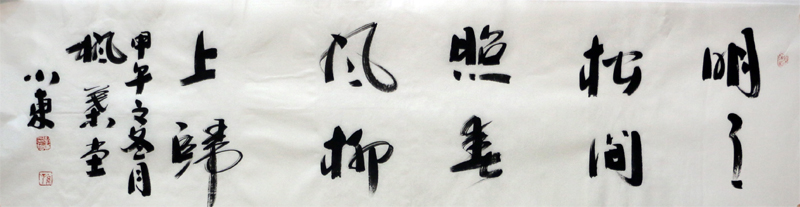 明月
松间
照春
风柳
上歸
甲午之冬月
枫葉堂
小東